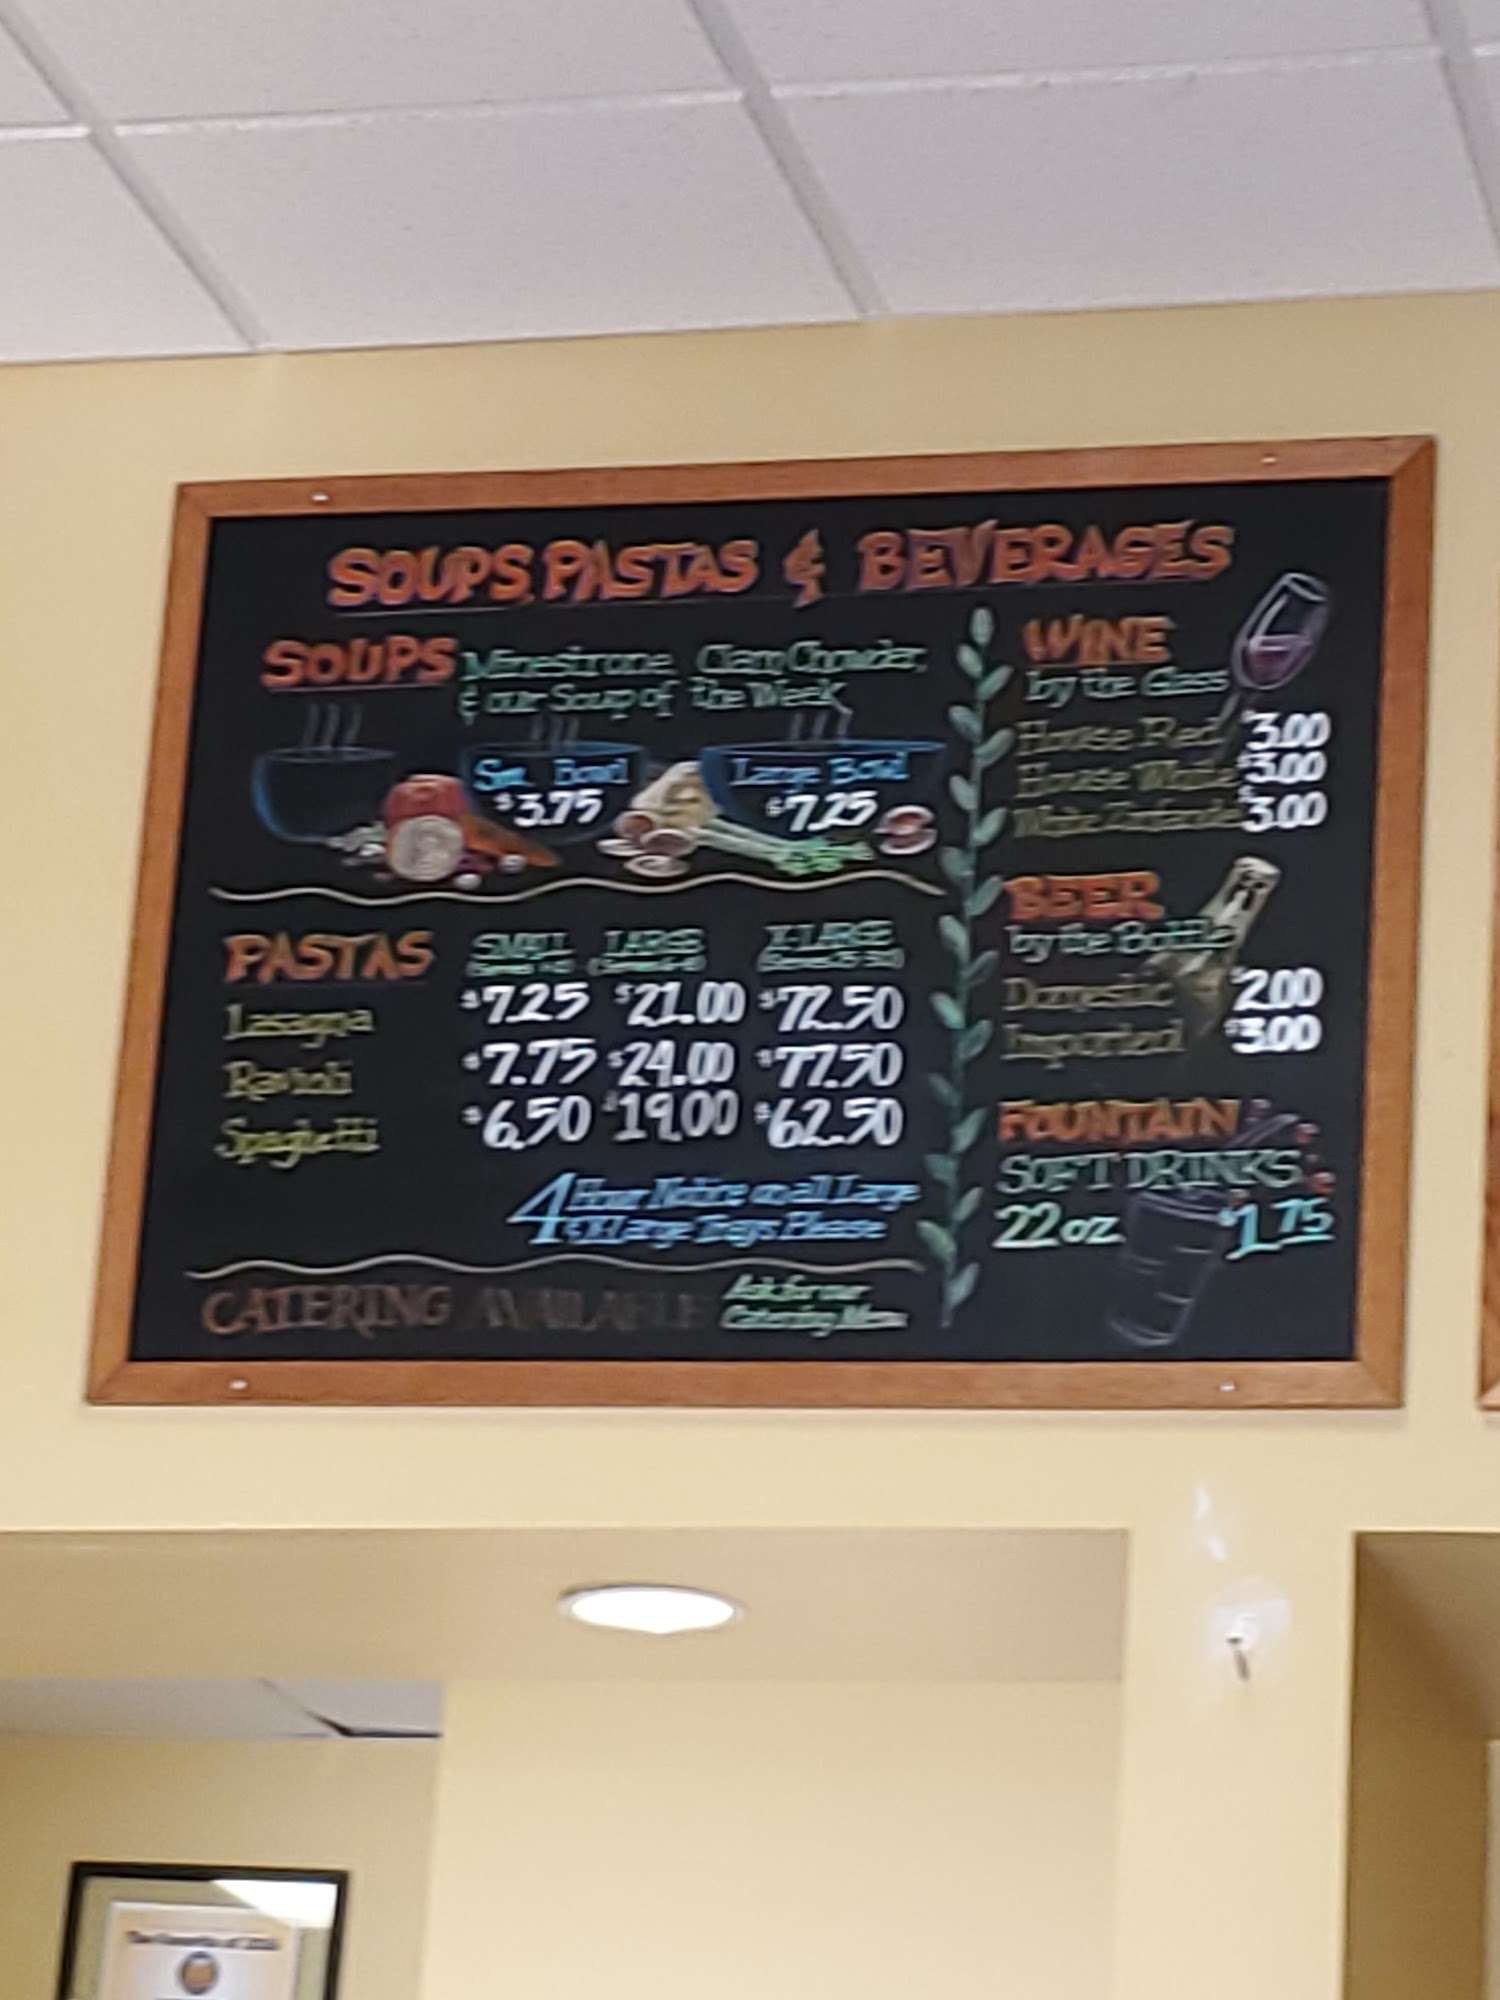 SOUPS, PASTAS & BEVERAGES
SOUPS Minestrone, Clam Chowder,
& our Soup of the Week
Sm. Bowl
$3.75
Large Bowl
$7.25
PASTAS SMALL LARGE X-LARGE
Lasagna $7.25 $21.00 $72.50
Ravioli $7.75 $24.00 $77.50
Spaghetti $6.50 $19.00 $62.50
4 Hour Notice on all Large
& X-Large Trays Please
CATERING AVAILABLE
Ask for our
Catering Menu
WINE
by the Glass
House Red $3.00
House White $3.00
White $3.00
BEER
by the Bottle
Domestic $2.00
Imported $3.00
FOUNTAIN
SOFT DRINKS
22oz $1.75